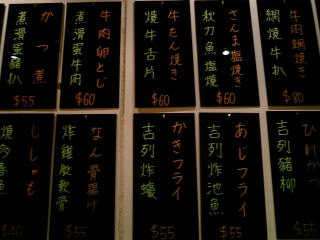 牛肉網焼き
網燒牛扒
$80
さんま塩焼き
秋刀魚塩燒
$60
牛たん焼き
燒牛舌片
$60
牛肉卵とじ
煮滑蛋牛肉
$60
かつ煮
煮滑蛋豬扒
$55
ひれかつ
吉列豬柳
$55
あじフライ
吉列炸池魚
$55
かきフライ
吉列炸蠔
$55
なん骨揚げ
炸雞肶軟骨
$55
ししゃも
燒多春魚
$40